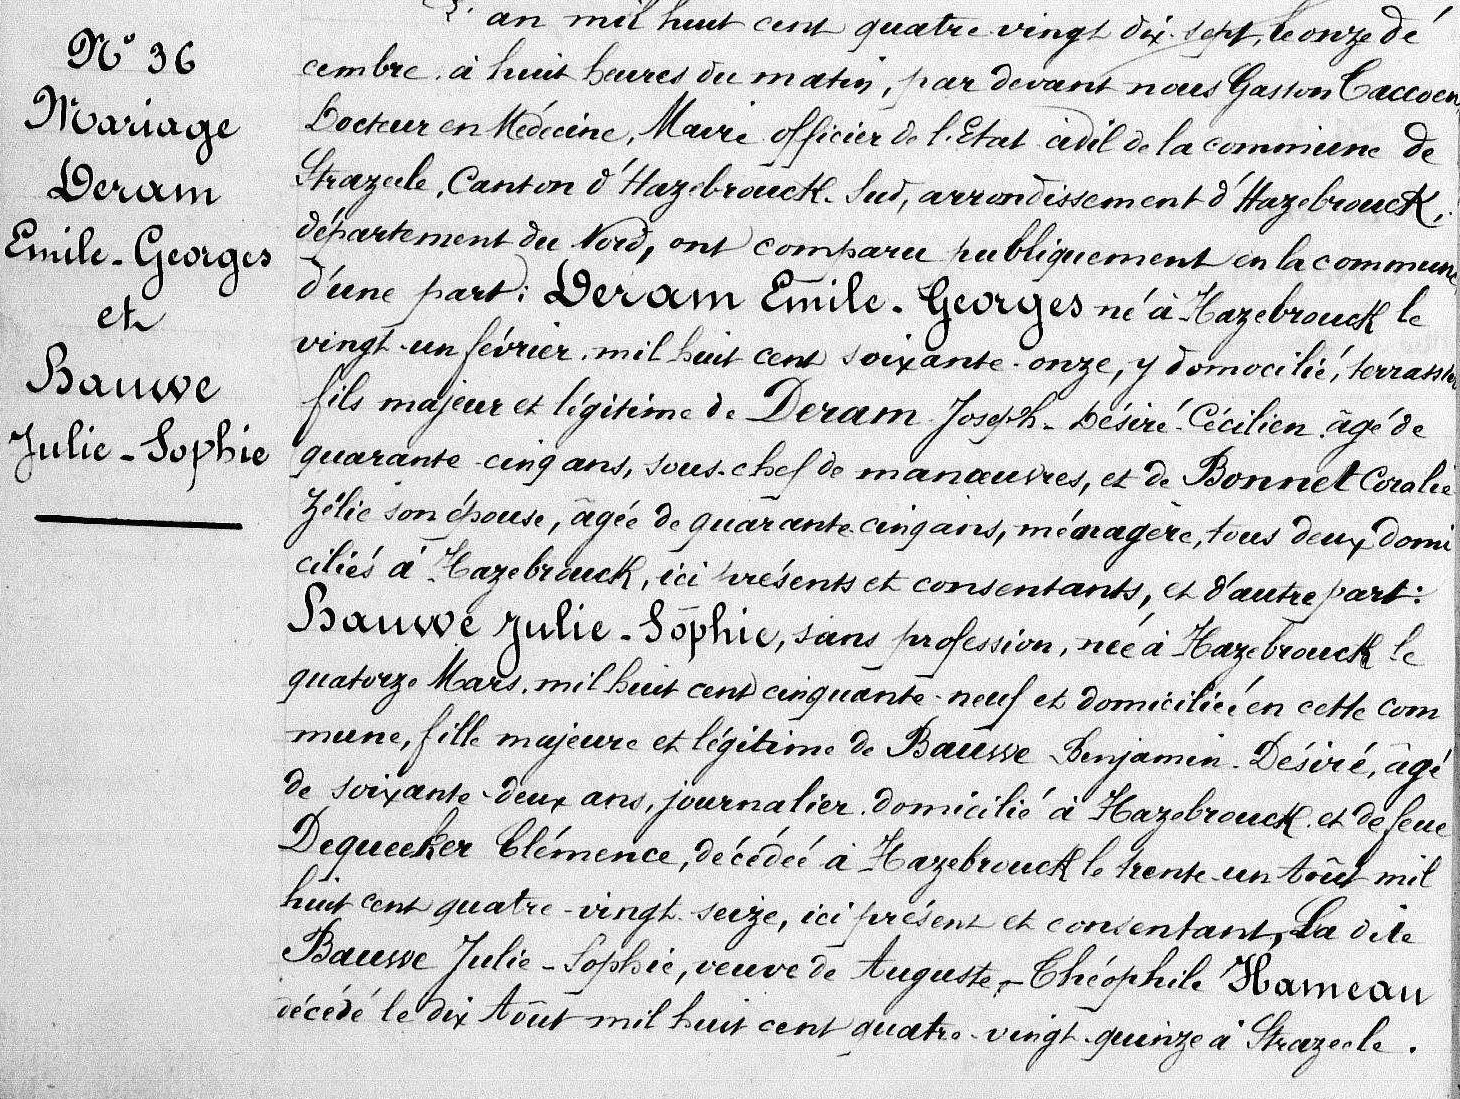 N° 36
Mariage
Deram
Emile-Georges
et
Bauwe
Julie-Sophie
L'an mil huit cent quatre-vingt dix-sept, le onze dé
cembre à huit heures du matin, par devant nous Gaston
Docteur en Médecine, Maire officier de l'Etat civil de la commune de
Strazeele, Canton d'Hazebrouck-Sud, arrondissement d'Hazebrouck,
département du Nord, ont comparu publiquement en la commune,
d'une part: Deram Emile-Georges né à Hazebrouck le
vingt-un février mil huit cent soixante-onze, y domocilié, terrassier
fils majeur et légitime de Deram Joseph-Désiré-Cécilien âgé de
quarante-cinq ans, sous-chef de manœuvres, et de Bonnet Coralie
Zélie son épouse, âgée de quarante-cinq ans, ménagère, tous deux domi
ciliés à Hazebrouck, ici présents et consentants, et d'autre part:
Bauwe Julie-Sophie, sans profession, née à Hazebrouck le
quatorze Mars mil huit cent cinquante-neuf et domiciliée en cette com
mune, fille majeure et légitime de Bauwe Benjamin-Désiré, âgé
de soixante-deux ans, journalier domicilié à Hazebrouck et de feue
Dequeeker Clémence, décédée à Hazebrouck le trente-un Août mil
huit cent quatre-vingt-seize, ici présent et consentant, La dite
Bauwe Julie-Sophie, veuve de Auguste-Théophile Hameau
décédé le dix Août mil huit cent quatre-vingt-quinze à Strazeele.